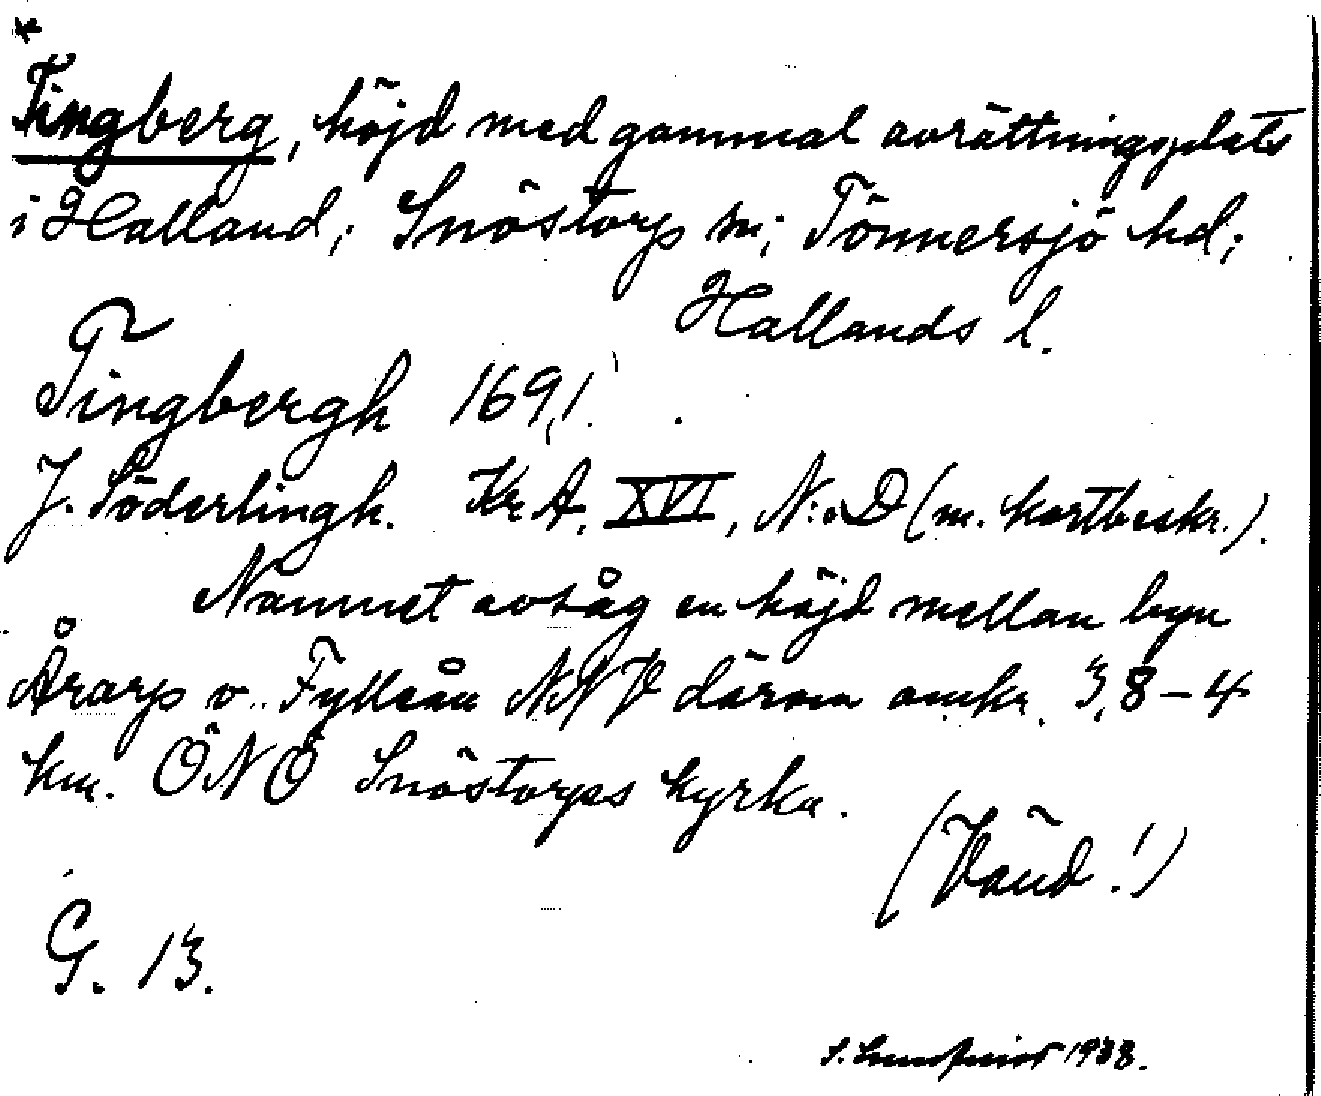 Tingberg, höjd med gammal avrättningsplats
i Halland; Snöstorp sn; Tönnersjö hd;
Hallands l.
Tingbergh 1691.
J. Söderlingh. Kr. A. XVI, N:o D (m. kartbeskr.).
Namnet avsåg en höjd mellan byn
Årarp o. Fylleån NNV därom omkr. 3,8-4
km. ÖNÖ Snöstorps kyrka.
(Vänd!)
G. 13.
1938.